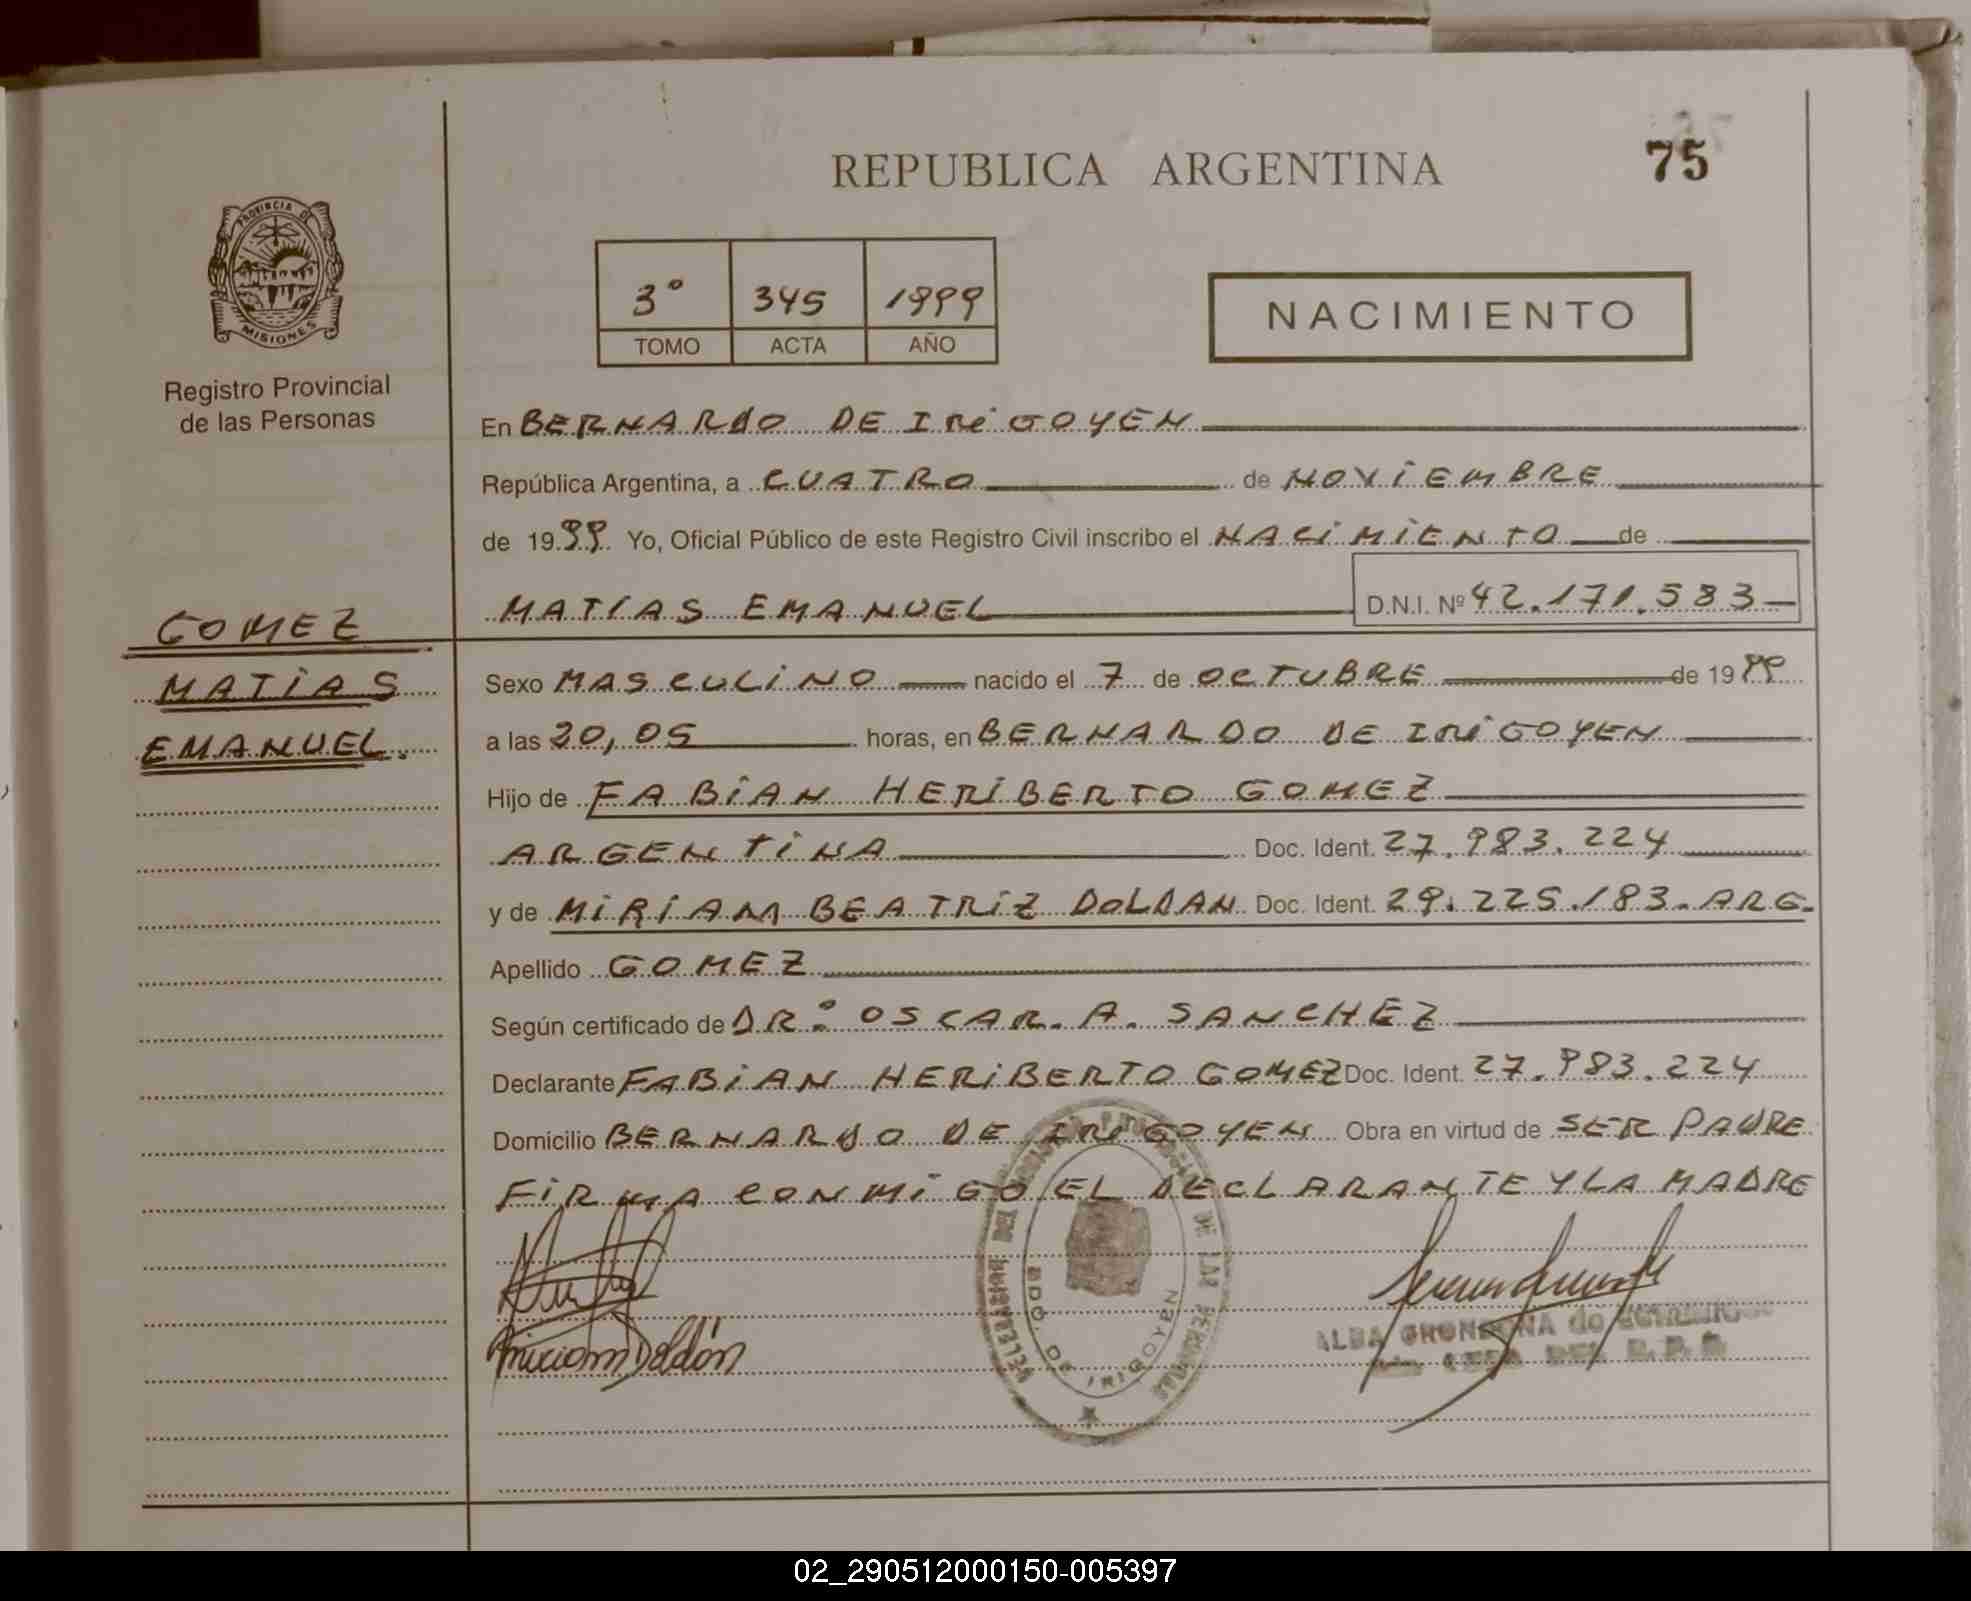 75
REPUBLICA ARGENTINA
PROVINCIA DE
MISIONES
Registro Provincial
de las Personas
3° 345 1999
TOMO ACTA AÑO
NACIMIENTO
En BERNARDO DE IRIGOYEN
República Argentina, a CUATRO de NOVIEMBRE
de 1999 Yo, Oficial Público de este Registro Civil inscribo el NACIMIENTO de
MATIAS EMANUEL D.N.I. Nº 42.171.583
GOMEZ
MATIAS
EMANUEL.
Sexo MASCULINO nacido el 7 de OCTUBRE de 1999
a las 20,05 horas, en BERNARDO DE IRIGOYEN
Hijo de FABIAN HERIBERTO GOMEZ
ARGENTINA Doc. Ident. 27.983.224
y de MIRIAM BEATRIZ DOLDAN Doc. Ident. 29.225.183. ARG.
Apellido GOMEZ
Según certificado de DR: OSCAR. A. SANCHEZ
Declarante FABIAN HERIBERTO GOMEZ Doc. Ident. 27.983.224
Domicilio BERNARDO DE IRIGOYEN Obra en virtud de SER PADRE
FIRMA CONMIGO EL DECLARANTE Y LA MADRE
Miriam Doldán
DE LAS PERSONAS
BDO. DE IRIGOYEN
ALBA
02_290512000150-005397